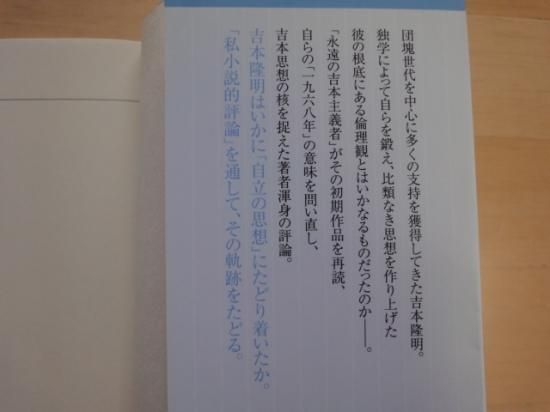 団塊世代を中心に多くの支持を獲得してきた吉本隆明。
独学によって自らを鍛え、比類なき思想を作り上げた
彼の根底にある倫理観とはいかなるものだったのか――。
「永遠の吉本主義者」がその初期作品を再読、
自らの「一九六八年」の意味を問い直し、
吉本思想の核を捉えた著者渾身の評論。
吉本隆明はいかに「自立の思想」にたどり着いたか。
「私小説的評論」を通して、その軌跡をたどる。